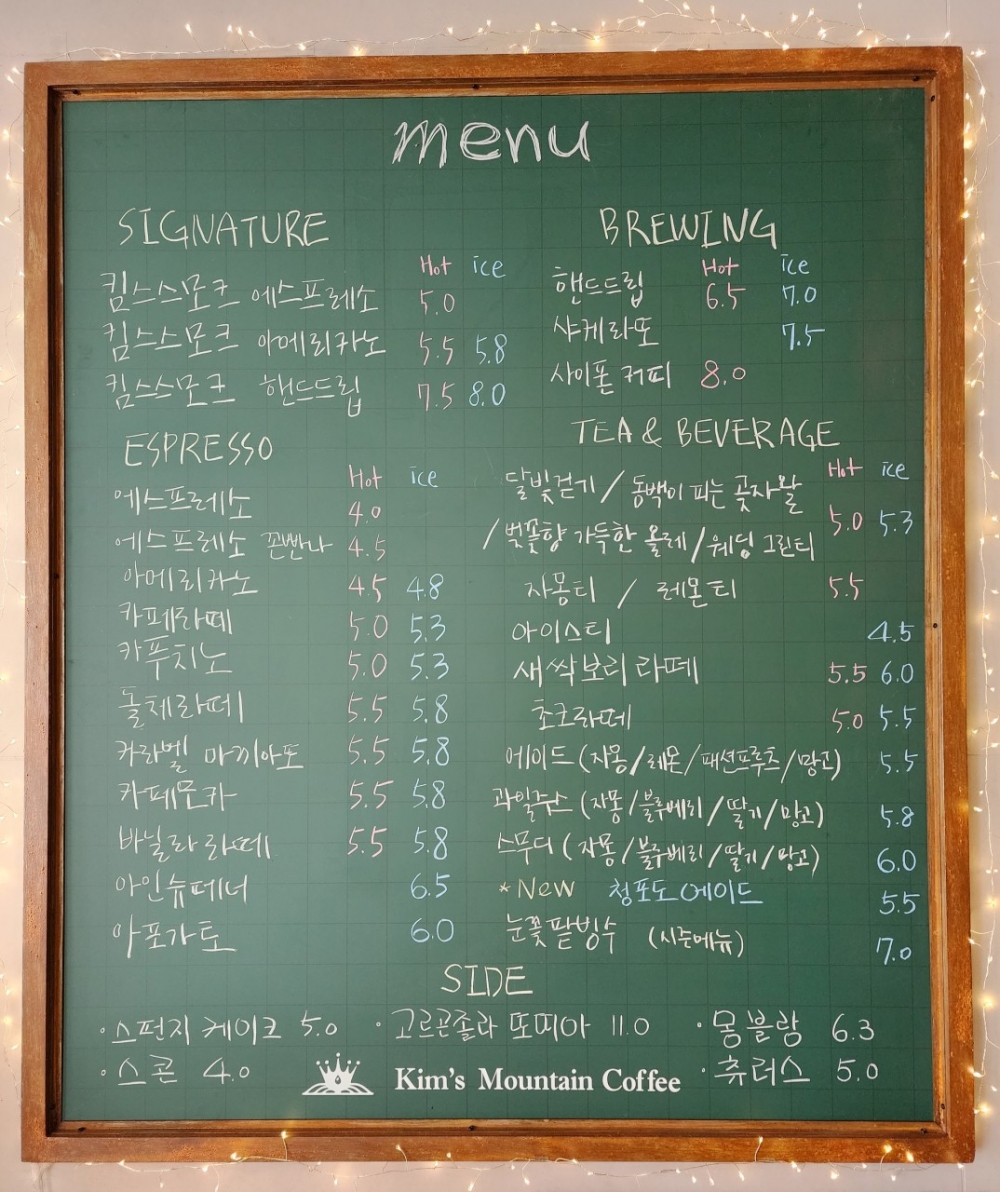 menu
SIGNATURE
Hot ice
킴스스모크 에스프레소 5.0
킴스스모크 아메리카노 5.5 5.8
킴스스모크 핸드드립 7.5 8.0
ESPRESSO
Hot ice
에스프레소 4.0
에스프레소 꼰빤나 4.5
아메리카노 4.5 4.8
카페라떼 5.0 5.3
카푸치노 5.0 5.3
돌체라떼 5.5 5.8
카라멜 마끼아또 5.5 5.8
카페모카 5.5 5.8
바닐라 라떼 5.5 5.8
아인슈페너 6.5
아포가토 6.0
BREWING
Hot ice
핸드드립 6.5 7.0
샤케라또 7.5
사이폰 커피 8.0
TEA & BEVERAGE
Hot ice
달빛걷기 / 동백이 피는 곶자왈
/ 벚꽃향 가득한 올레 / 웨딩 그린티 5.0 5.3
자몽티 / 레몬티 5.5
아이스티 4.5
새싹보리 라떼 5.5 6.0
초코라떼 5.0 5.5
에이드 (자몽/레몬/패션프루츠/망고) 5.5
과일쥬스 (자몽/블루베리/딸기/망고) 5.8
스무디 (자몽/블루베리/딸기/망고) 6.0
*New 청포도에이드 5.5
눈꽃팥빙수 (시즌메뉴) 7.0
SIDE
·스펀지 케이크 5.0 ·고르곤졸라 또띠아 11.0 ·몽블랑 6.3
·스콘 4.0 Kim's Mountain Coffee ·츄러스 5.0